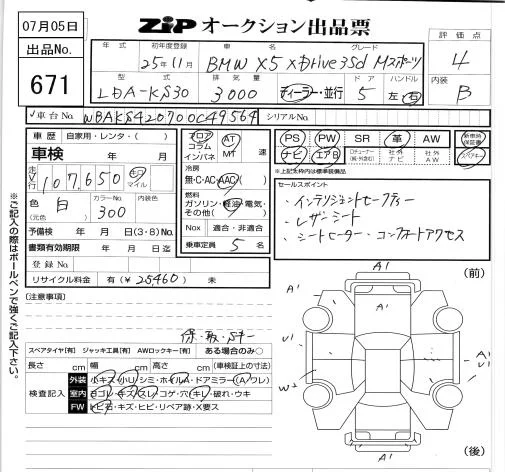 07月05日
ZIP オークション出品票
出品No.
671
年式 初年度登録 車名 グレード
25年11月 BMW X5 xDrive35d Mスポーツ
評価点
4
型式 排気量 ドア ハンドル
LDA-KS30 3000 ディーラー・並行 5 左・右
内装
B
車台No. WBAKS420700C49564 シリアルNo.
車歴 自家用・レンタ・( )
車検 年 月
走行 107,650 キロ マイル
色 (元色) 白 カラーNo. 300 内装色
予備検 年 月 日(3・8)No.
書類有効期限 年 月 日
登録No.
リサイクル料金 有(¥25460) 未
フロア コラム インパネ AT MT 速
冷房
無・C・AC・AAC
燃料
ガソリン・軽油・電気・その他( )
Nox 適合・非適合
乗車定員 5 名
PS PW SR 革 AW 新車時保証書
ナビ エアB 社外ナビ 社外AW スペアキー
※上記本枠内は標準装備品
セールスポイント
・インテリジェントセーフティー
・レザーシート
・シートヒーター・コンフォートアクセス
【注意事項】
保・取・Sキー
スペアタイヤ[有] ジャッキ工具[有] AWロックキー[有] ある場合のみ○
長さ cm 幅 cm 高さ cm (車検証上の寸法)
検査記入
外装 小キズ・小U・シミ・ホイルA・ドアミラー(A・ワレ)
室内 ヨゴレ・キズ・スレ・コゲ・穴・キレ・破れ・ウキ
FW トビ石・キズ・ヒビ・リペア跡・X要ス
※ご記入の際はボールペンで強くご記入下さい。
(前)
A1
A1
A1
U1
A1
U1
W2
A1
(後)